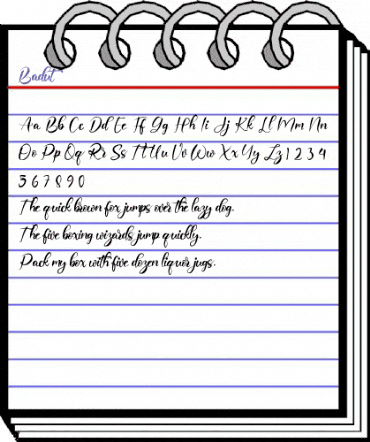 Badut
Aa Bb Cc Dd Ee Ff Gg Hh Ii Jj Kk Ll Mm Nn
Oo Pp Qq Rr Ss Tt Uu Vv Ww Xx Yy Zz 1 2 3 4
5 6 7 8 9 0
The quick brown fox jumps over the lazy dog.
The five boxing wizards jump quickly.
Pack my box with five dozen liquor jugs.